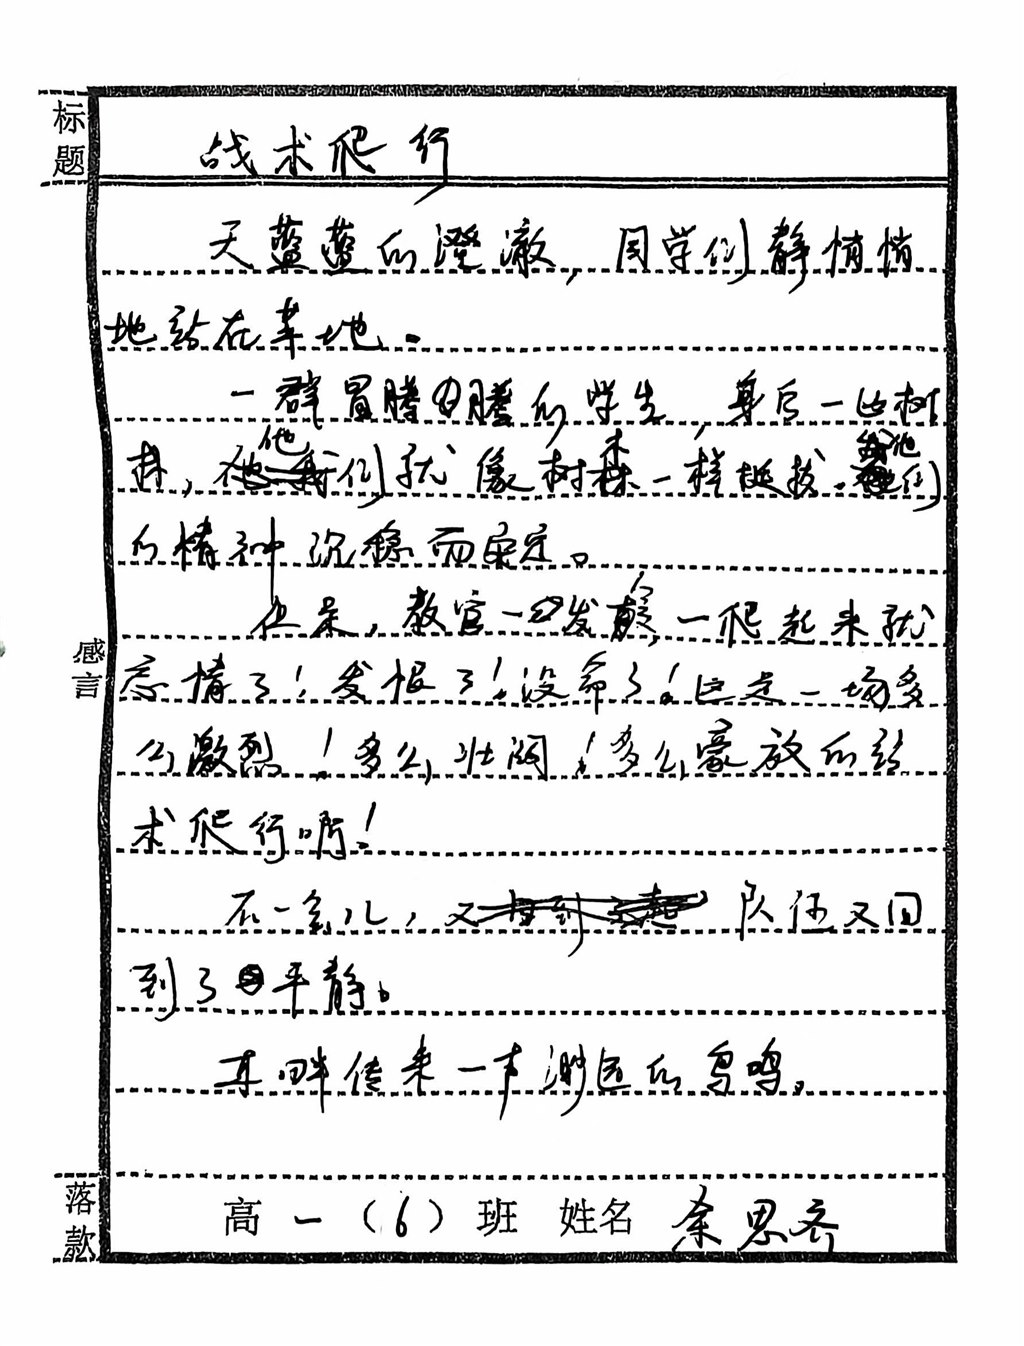 标题
战术爬行
天蓝蓝的澄澈，同学们静悄悄
地站在草地。
一群冒腾腾的学生，身后一片树
林，他们就像树木一样挺拔。他们
的精神沉稳而安定。
但是，教官一发颠，一爬起来就
忘情了！发恨了！没命了！这是一场多
么激烈！多么壮阔！多么豪放的战
术爬行啊！
不一会儿，队伍又回
到了平静。
耳畔传来一声渺远的鸟鸣。
感言
落款
高一（6）班 姓名 余思齐